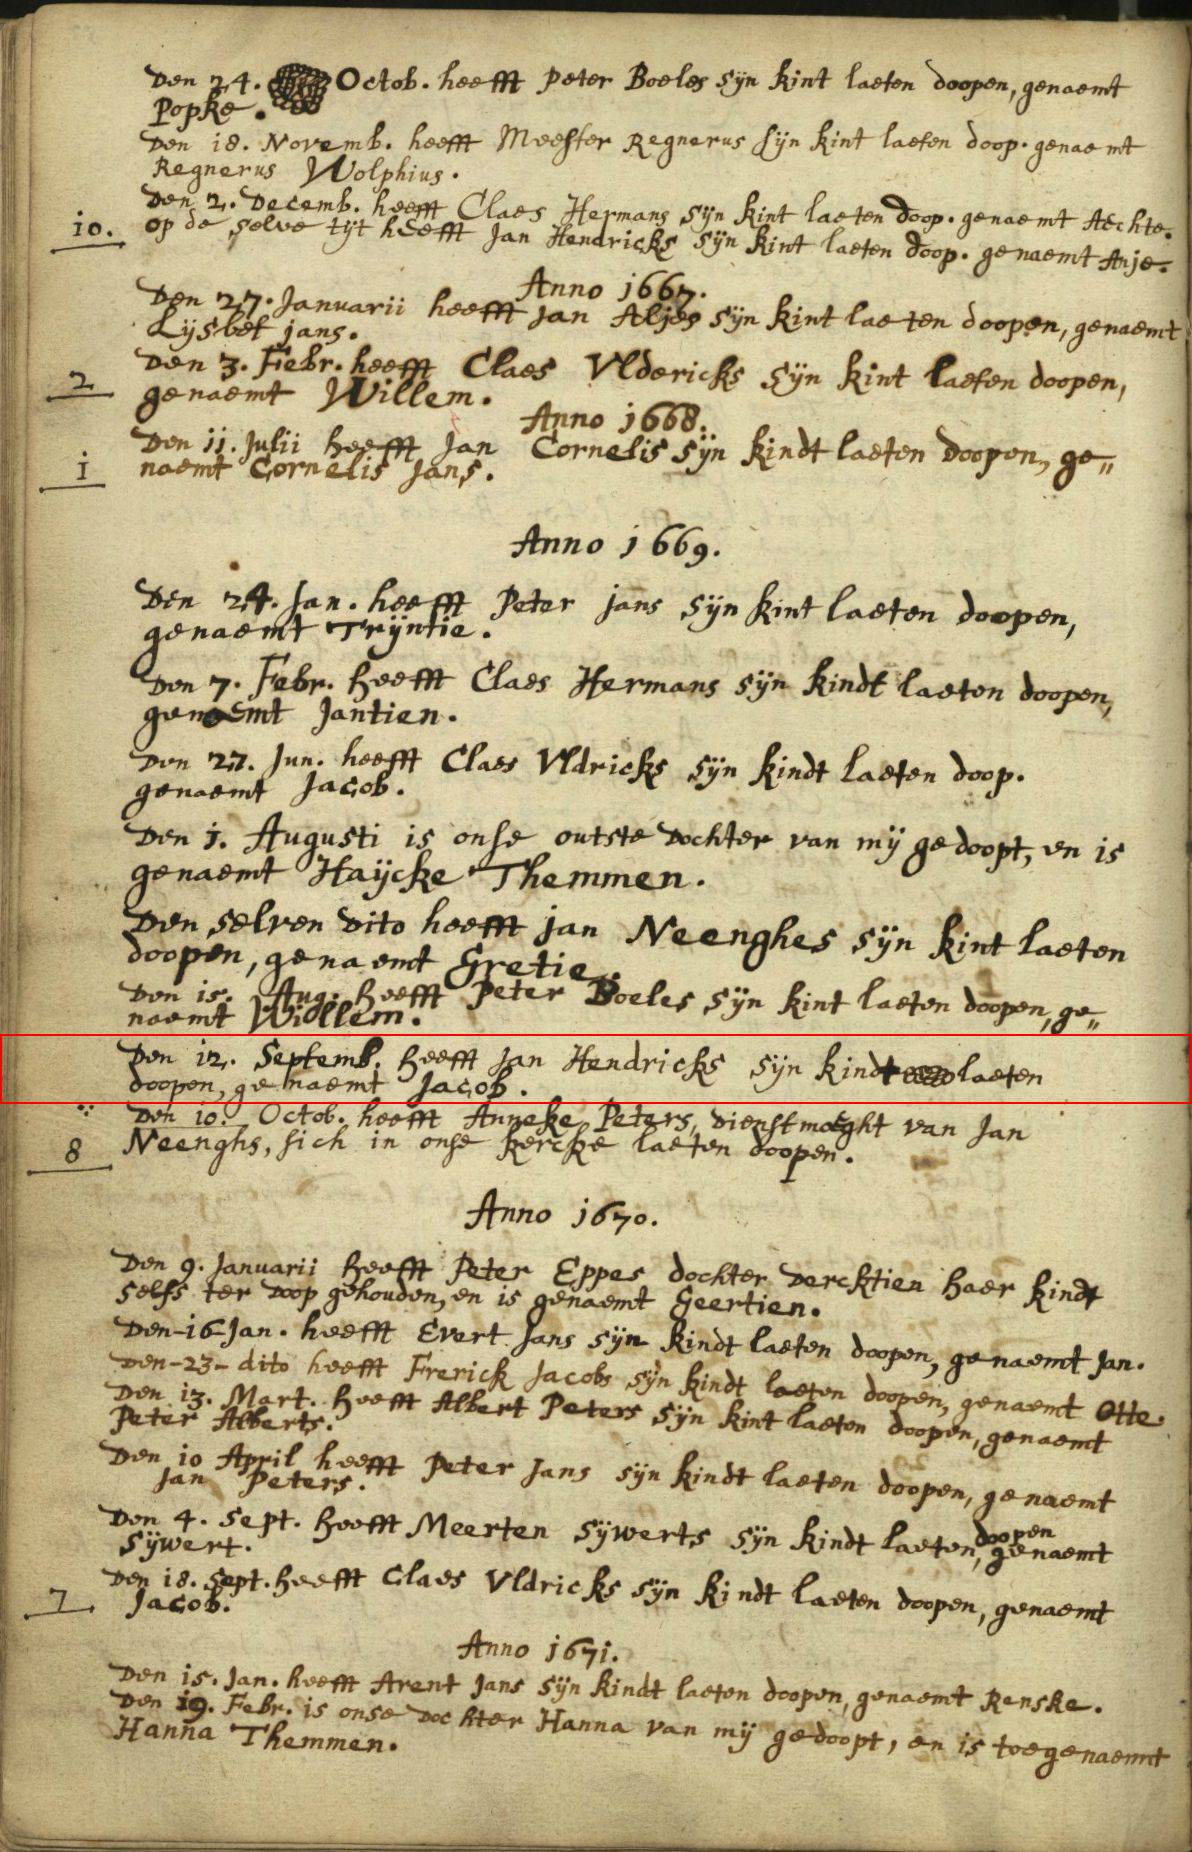 Den 24. Octob. heefft Peter Boeles sÿn kint laeten doopen, genaemt
Popke.
Den 18. Novemb. heefft Meester Regnerus sÿn kint laeten doop. genaemt
Regnerus Wolphius.
Den 2. Decemb. heefft Claes Hermans sÿn kint laeten doop. genaemt Aechte.
10. op de selve tijt heefft Jan Hendricks sÿn kint laeten doop. genaemt Anje.
Anno 1667.
Den 27. Januarii heefft Jan Aljes sÿn kint laeten doopen, genaemt
Lijsbet jans.
Den 3. Febr. heefft Claes Vldericks sÿn kint laeten doopen,
2 genaemt Willem.
Anno 1668.
Den 11. Julii heefft Jan Cornelis sÿn kindt laeten doopen, ge„
1 naemt Cornelis Jans.
Anno 1669.
Den 24. Jan. heefft Peter jans sÿn kint laeten doopen,
genaemt Trÿntie.
Den 7. Febr. heefft Claes Hermans sÿn kindt laeten doopen,
genaemt Jantien.
Den 27. Jun. heefft Claes Vldricks sÿn kindt laeten doop.
genaemt Jacob.
Den 1. Augusti is onse outste dochter van mÿ gedoopt, en is
genaemt Haÿcke Themmen.
Den selven dito heefft jan Neenghes sÿn kint laeten
doopen, genaemt Gretie.
Den 15. Aug. heefft Peter Boeles sÿn kint laeten doopen, ge„
naemt Willem.
Den 12. Septemb. heefft Jan Hendricks sÿn kindt laeten
doopen, genaemt Jacob.
Den 10. Octob. heefft Anneke Peters, dienstmaeght van Jan
8 Neenghs, sich in onse kercke laeten doopen.
Anno 1670.
Den 9. Januarii heefft Peter Eppes dochter Dercktien haer kindt
selfs ter doop gehouden, en is genaemt Geertien.
Den-16-Jan. heefft Evert Jans sÿn kindt laeten doopen, genaemt Jan.
Den-23-dito heefft Frerick Jacobs sÿn kindt laeten doopen, genaemt Otte.
Den 13. Mart. heefft Albert Peters sÿn kint laeten doopen, genaemt
Peter Alberts.
Den 10 April heefft Peter Jans sÿn kindt laeten doopen, genaemt
Jan Peters.
Den 4. Sept. heefft Meerten Sÿwerts sÿn kindt laeten, doopen genaemt
Sÿwert.
Den 18. Sept. heefft Claes Vldricks sÿn kindt laeten doopen, genaemt
7 Jacob.
Anno 1671.
Den 15. Jan. heefft Arent Jans sÿn kindt laeten doopen, genaemt Renske.
Den 19. Febr. is onse dochter Hanna van mÿ gedoopt, en is toegenaemt
Hanna Themmen.